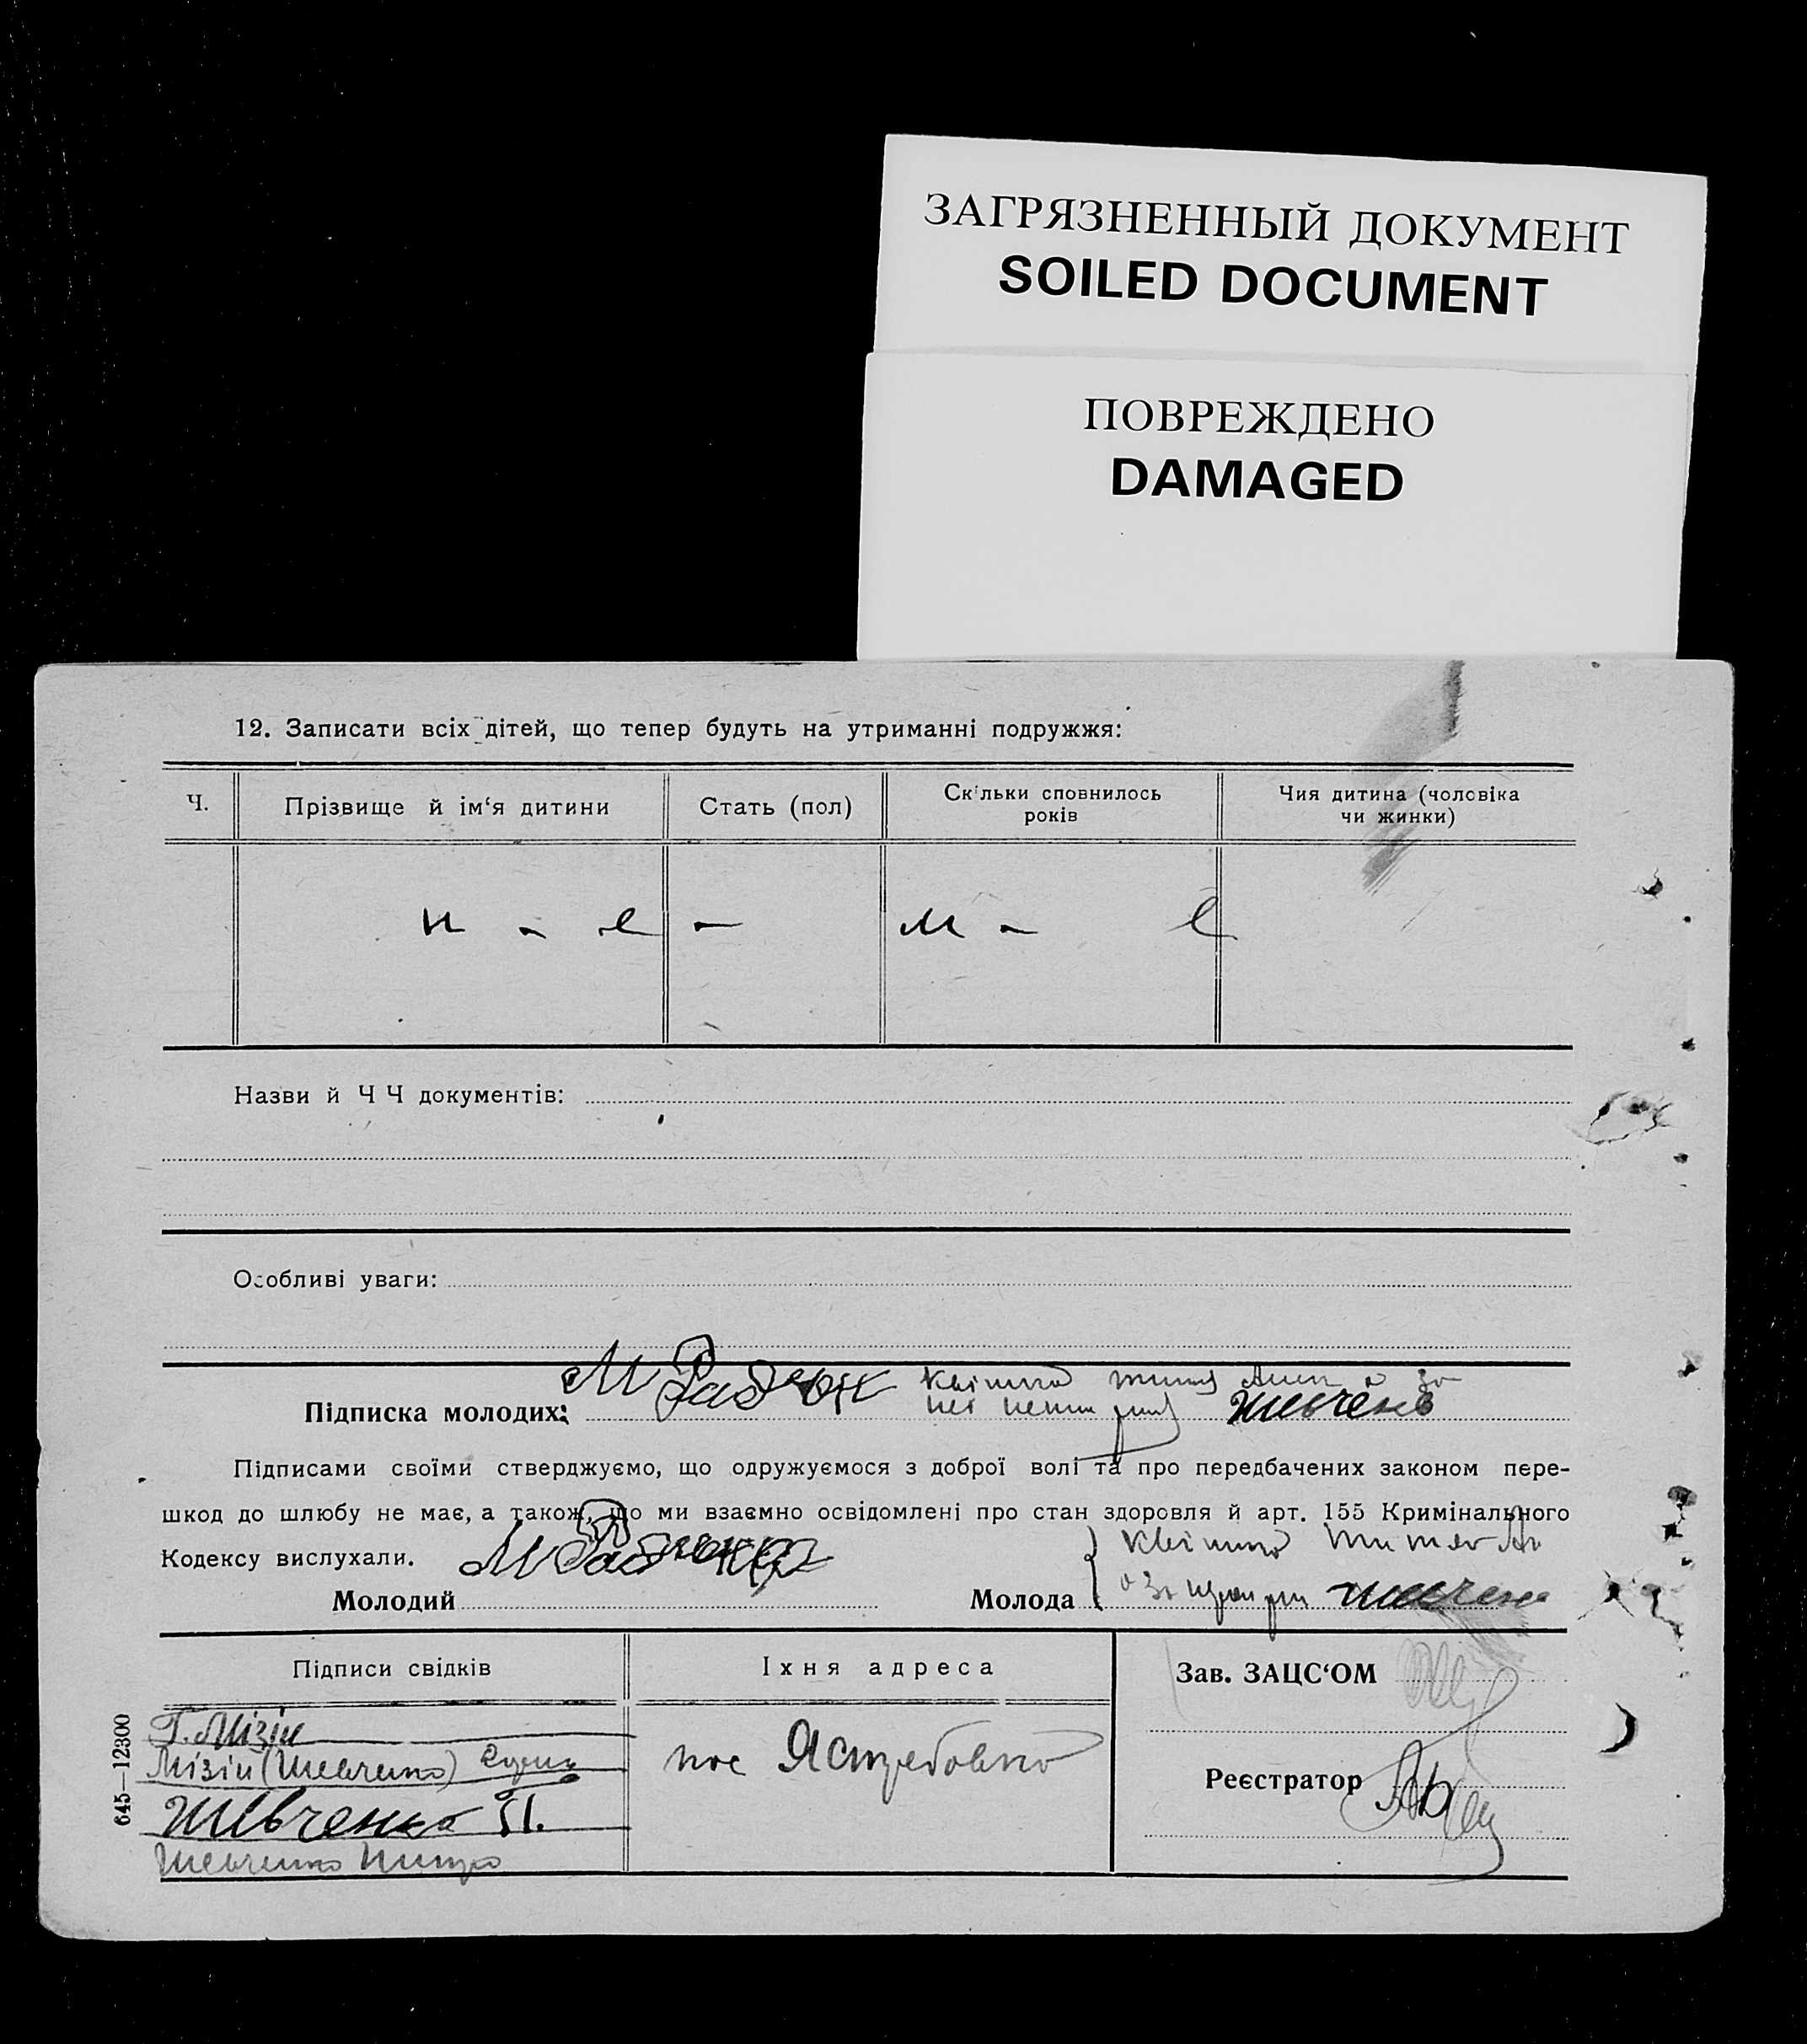 ЗАГРЯЗНЕННЫЙ ДОКУМЕНТ
SOILED DOCUMENT
ПОВРЕЖДЕНО
DAMAGED
12. Записати всіх дітей, що тепер будуть на утриманні подружжя:
Ч. Прізвище й ім‘я дитини Стать (пол) Скільки сповнилось років Чия дитина (чоловіка чи жинки)
Назви й Ч Ч документів:
Особливі уваги:
Підписка молодих:
Підписами своїми стверджуємо, що одружуємося з доброї волі та про передбачених законом пере-
шкод до шлюбу не має, а також, що ми взаємно освідомлені про стан здоровля й арт. 155 Кримінального
Кодексу вислухали.
Молодий Молода
Підписи свідків Їхня адреса Зав. ЗАЦС‘ОМ
Г. Мізін
Мізін (Шевченко) пос Ястребовко
Реєстратор
Шевченко
Шевченко
645—12300